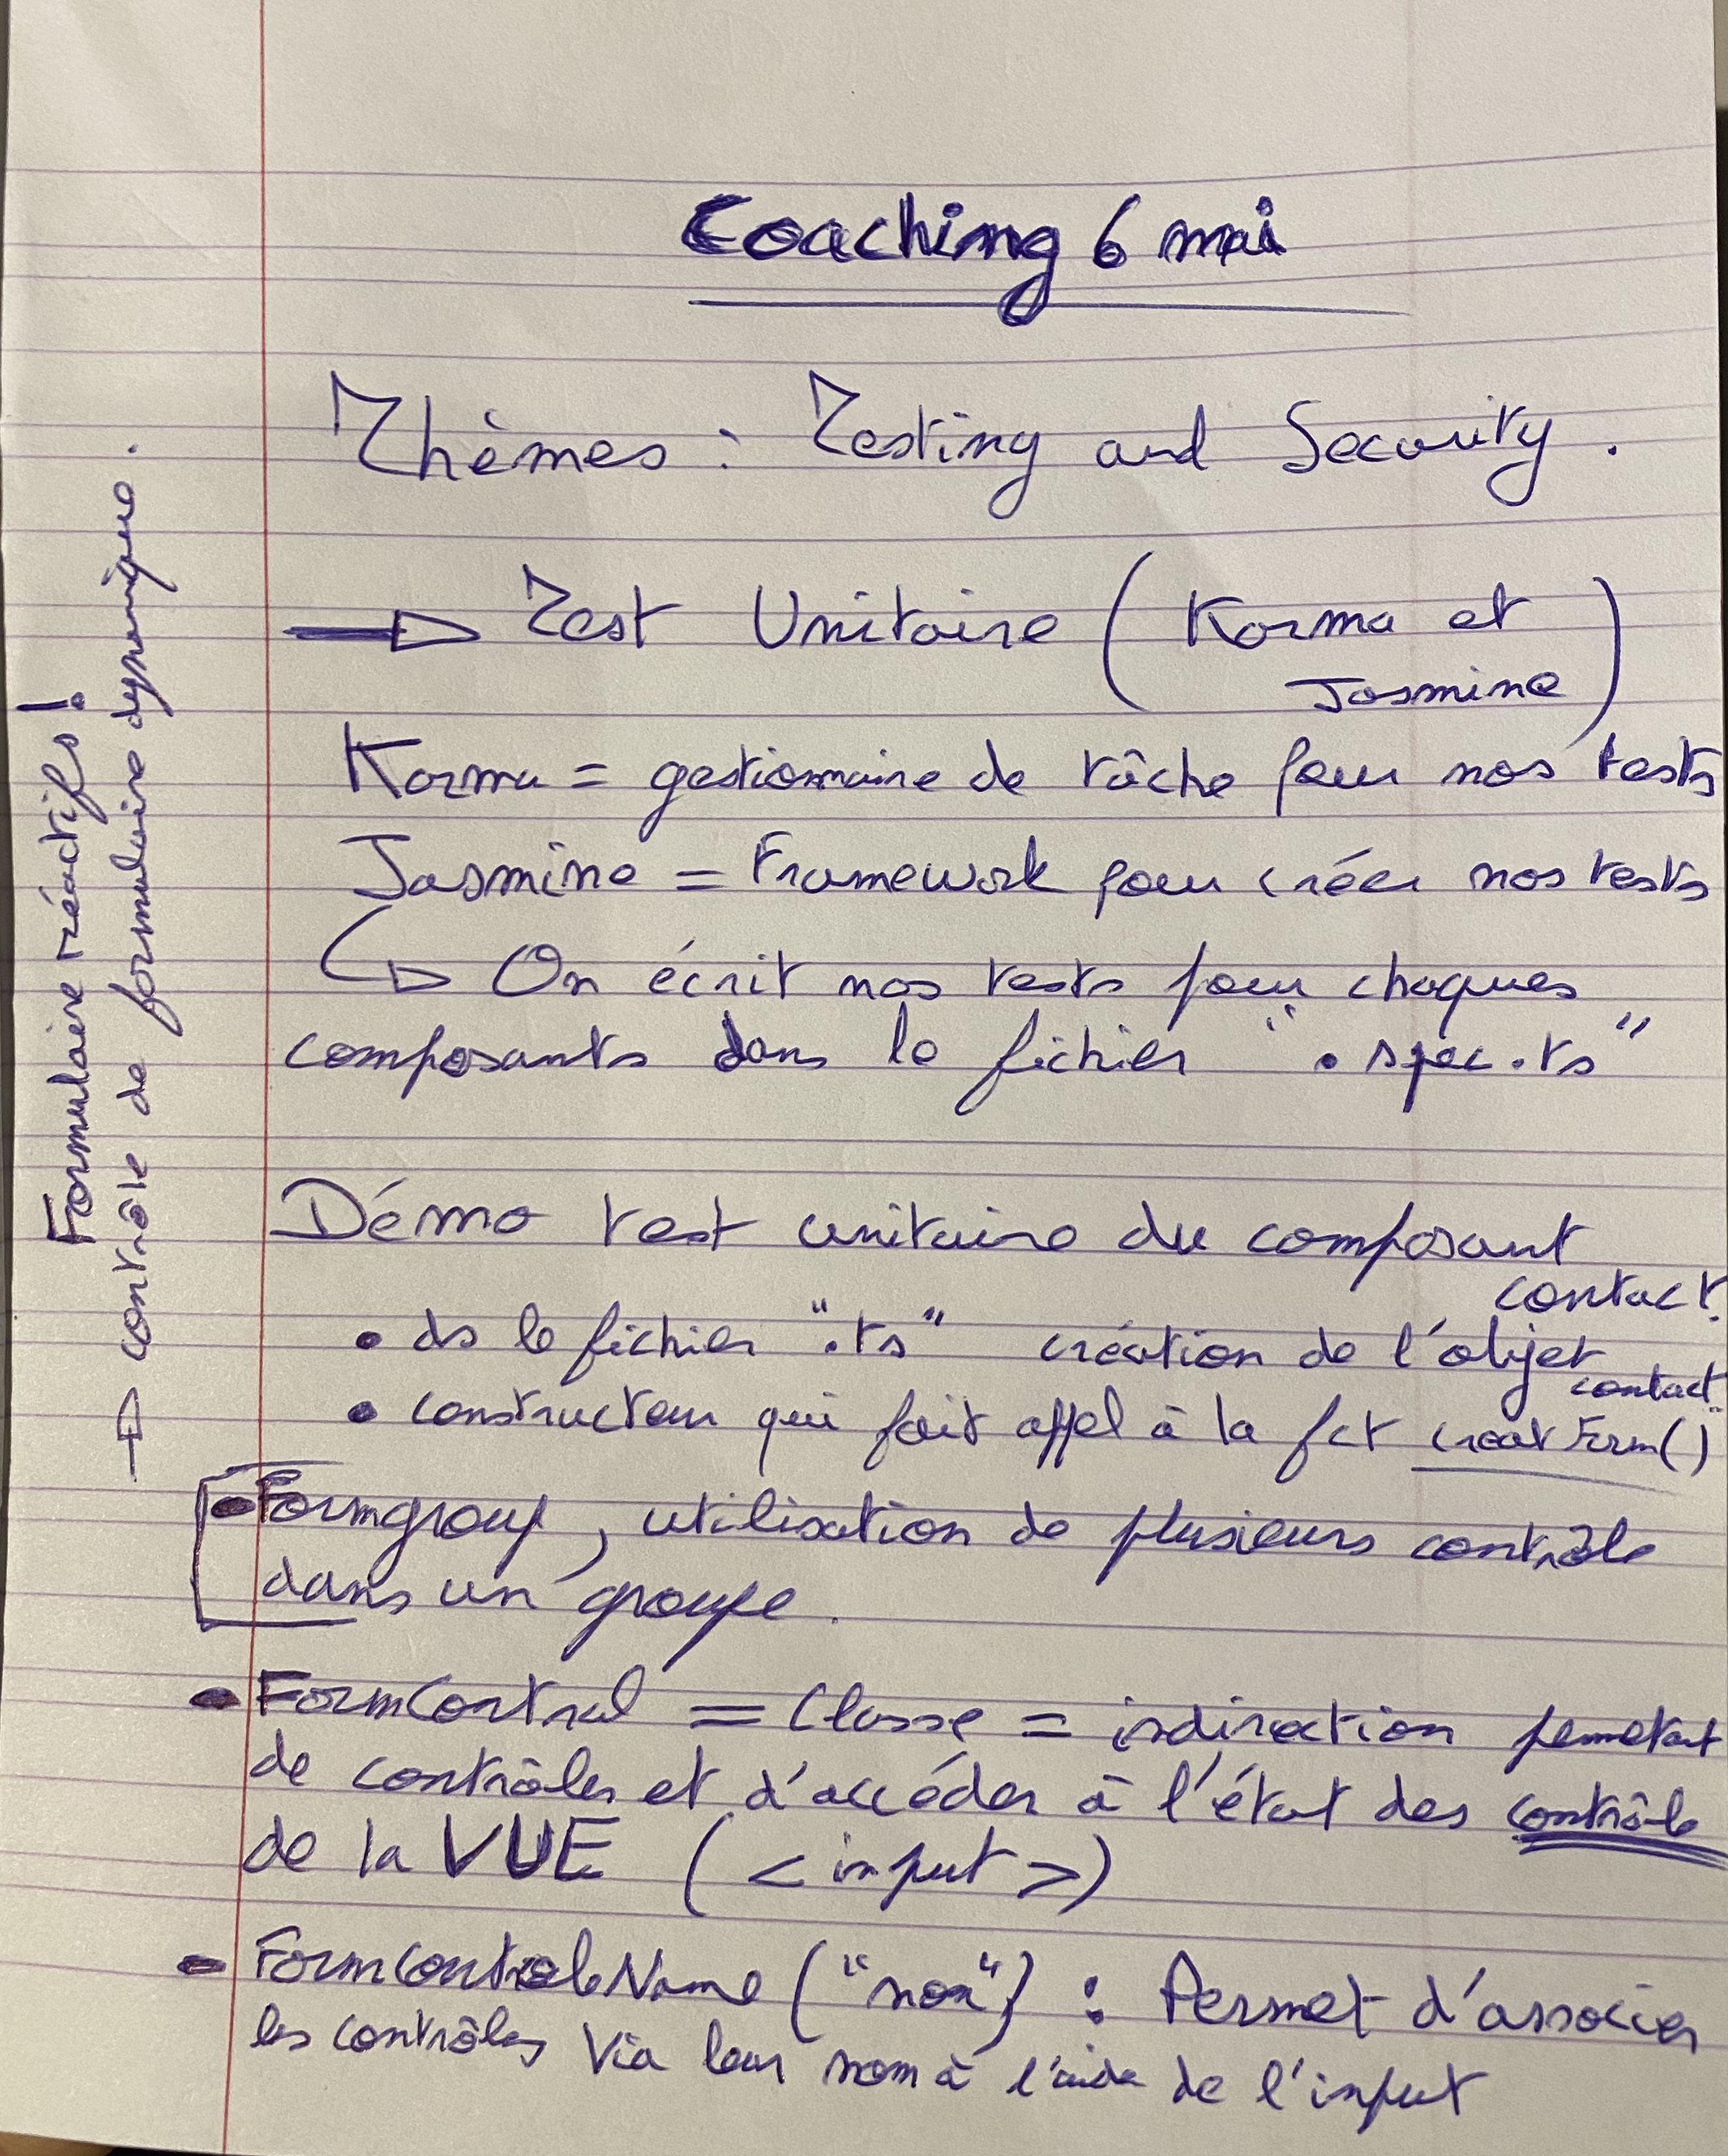 Coaching 6 mai
Thèmes : Testing and Security.
Test Unitaire ( Karma et
Jasmine )
Karma = gestionnaire de tâche pour nos tests
Jasmine = Framework pour créer nos tests
On écrit nos tests pour chaques
composants dans le fichier " .spec.ts "
Démo test unitaire du composant
contact.
• ds le fichier ".ts" création de l'objet
contact.
• constructeur qui fait appel à la fct creatForm()
- Formgroup, utilisation de plusieurs contrôle
dans un groupe.
- FormControl = Classe = indirection permetant
de contrôler et d'accéder à l'état des contrôle
de la VUE ( <input> )
- FormControleName ("nom") : Permet d'associer
les contrôles via leur nom à l'aide de l'input
Formulaire réactifs !
→ contrôle de formulaire dynamique.